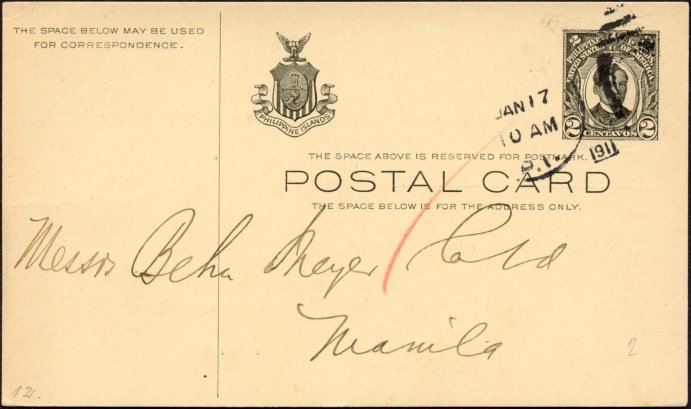 THE SPACE BELOW MAY BE USED
FOR CORRESPONDENCE.
PHILIPPINE ISLANDS
2 2
PHILIPPINE ISLANDS
UNITED STATES OF AMERICA
2 CENTAVOS 2
JAN 17
10 AM
P.I.
1911
THE SPACE ABOVE IS RESERVED FOR POSTMARK.
POSTAL CARD
THE SPACE BELOW IS FOR THE ADDRESS ONLY.
Messrs Behn Meyer & Co Ltd
Manila
2
12.